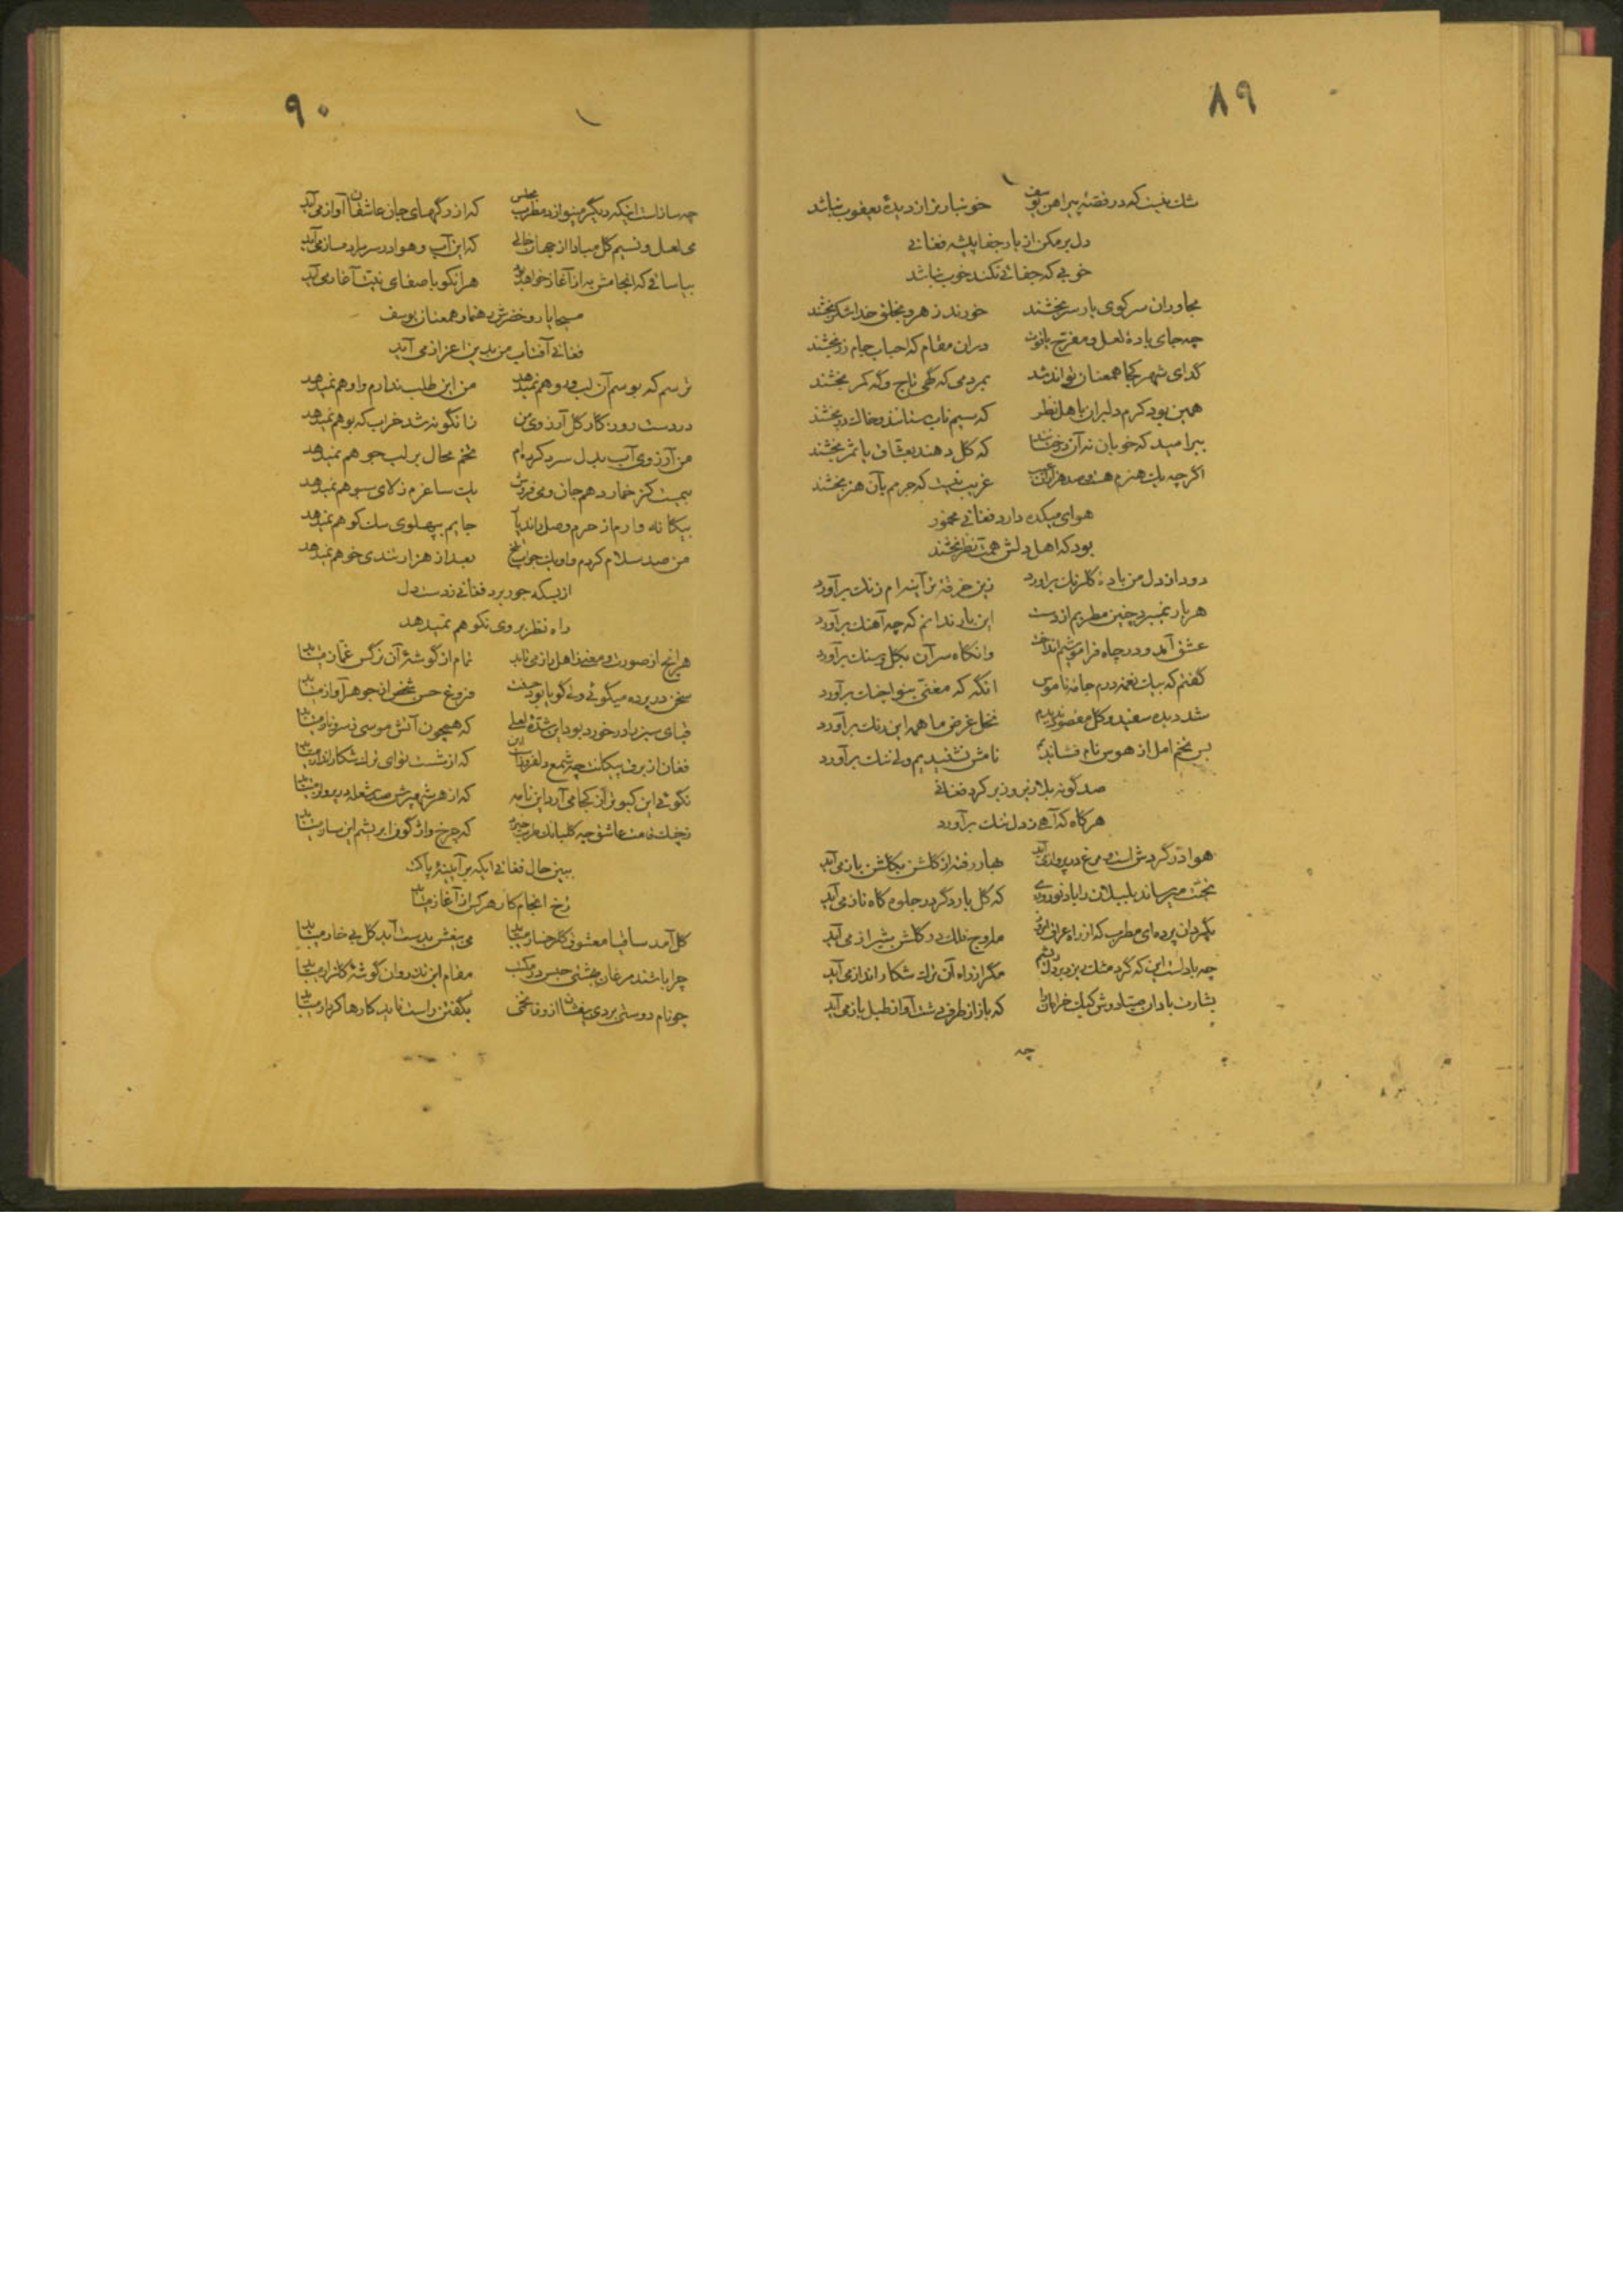 ۸۹
شك نیست که در قصه پیراهن یوسف خونبارتر از دیدهٔ یعقوب نباشد
دل بر مکن از یار جفا پیشه فغانی
خوبی که جفائی نکند خوب نباشد
مجاوران سر کوی یار سر بخشند خورند زهر و بخلق خدا شکر بخشند
چه جای بادهٔ لعل و مفرح یاقوت دران مقام که احباب جام زر بخشند
گدای شهر کجا همعنان تواند شد بمردمی که گهی تاج و گه کمر بخشند
همین بود کرم دلبران باهل نظر که سیم ناب ستانند و خاك در بخشند
ببر امید که خوبان نه آن درختانند که گل دهند بعشاق یا ثمر بخشند
اگر چه یك هنرم هست و صد هزاران عیب غریب نیست که جرمم بآن هنر بخشند
هوای میکده دارد فغانی مخمور
بود که اهل دلش همت نظر بخشند
دود از دل من بادهٔ گلرنك برآورد زین خرقه تر آینه‌ام زنك برآورد
هر بار نمیبرد چنین مطربم از دست این بار ندانم که چه آهنك برآورد
عشق آمد و در چاه فراموشیم انداخت وانگاه سر آن بگل و سنك برآورد
گفتم که بیك نغمه درم جامهٔ ناموس انگه که مغنی بنوا چنك برآورد
شد دیده سفید و گل مقصود ندیدیم نخل غرض ما همه این رنك برآورد
بس تخم امل از هوس نام فشاندیم نامش نشنیدیم ولی ننك برآورد
صد گونه بلا زیر و زبر کرد فغانی
هر گاه که آهی ز دل تنك برآورد
هوا در گردش است و مرغ در پرواز می‌آید بهار رفته از گلشن بگلشن باز می‌آید
که گل بار دگر در جلوه گاه ناز می‌آید
بگردان پرده‌ای مطرب که از راه عراق امروز ملوح فلك در گلشن شیراز می‌آید
چه باد است این که گرد مشك میریزد برویم مگر از راه آن ترك شکار انداز می‌آید
بشارت باد که باز از طرف دشت آواز طبل باز می‌آید
چه
۹۰
چه ساز است اینکه دیگر مینوازد مطرب مجلس که از رگهای جان عاشقان آواز می‌آید
می لعل و نسیم گل مبادا از جهان خالی که این آب و هوا در سر مرا دمساز می‌آید
بیا ساقی که انجامش به از آغاز خواهد شد هر انکو با صفای نیت آغاز می‌آید
مسیحا یار و خضرش رهنما و همعنان یوسف
فغانی آفتاب من بدین اعزاز می‌آید
ترسم که بوسم آن لب و رو هم نمیدهد من این طلب ندارم و او هم نمیدهد
گل آرزوی من زانگونه شد خراب که بو هم نمیدهد
من آرزوی آب بدل سرد کرده‌ام تخم محال بر لب جو هم نمیدهد
یك ساغرم ز لای سبو هم نمیدهد
بیگانه وارم از حرم وصل راند یار جایم بپهلوی سك کو هم نمیدهد
من صد سلام کردم و او یك جواب تلخ بعد از هزار تندی خو هم نمیدهد
از بسکه جور برد فغانی ز دست دل
راه نظر بروی نکو هم نمیدهد
هر انچ از صورت و معنی ز اهل راز می‌ باید تمام از گوشهٔ آن نرگس غماز مییابد
سخن در پرده میگوئی ولی گویا فروغ حسن جوهر آواز مییابد
قبای سبز که همچون آتش موسی ز سرو ناز مییابد
که از شست توای ترك شکار انداز مییابد
نگوئی این کبوتر از کجا می‌آرد این نامه که از هر شهپرش صد شعله در پرواز مییابد
که چرخ واژگون ابریشم این ساز مییابد
ببین حال فغانی ایکه بر آیینهٔ پاکت
رخ انجام کار هر کس از آغاز مییابد
گل آمد ساقیا معشوق گلرخسار میباید می بیغش بدست آمد گل بی خار میباید
چرا باشند مرغان بهشتی حبس در مکتب مقام این تذروان گوشهٔ گلزار میباید
چو نام دوستی بردی بگفتن راست ناید کارها کردار میباید